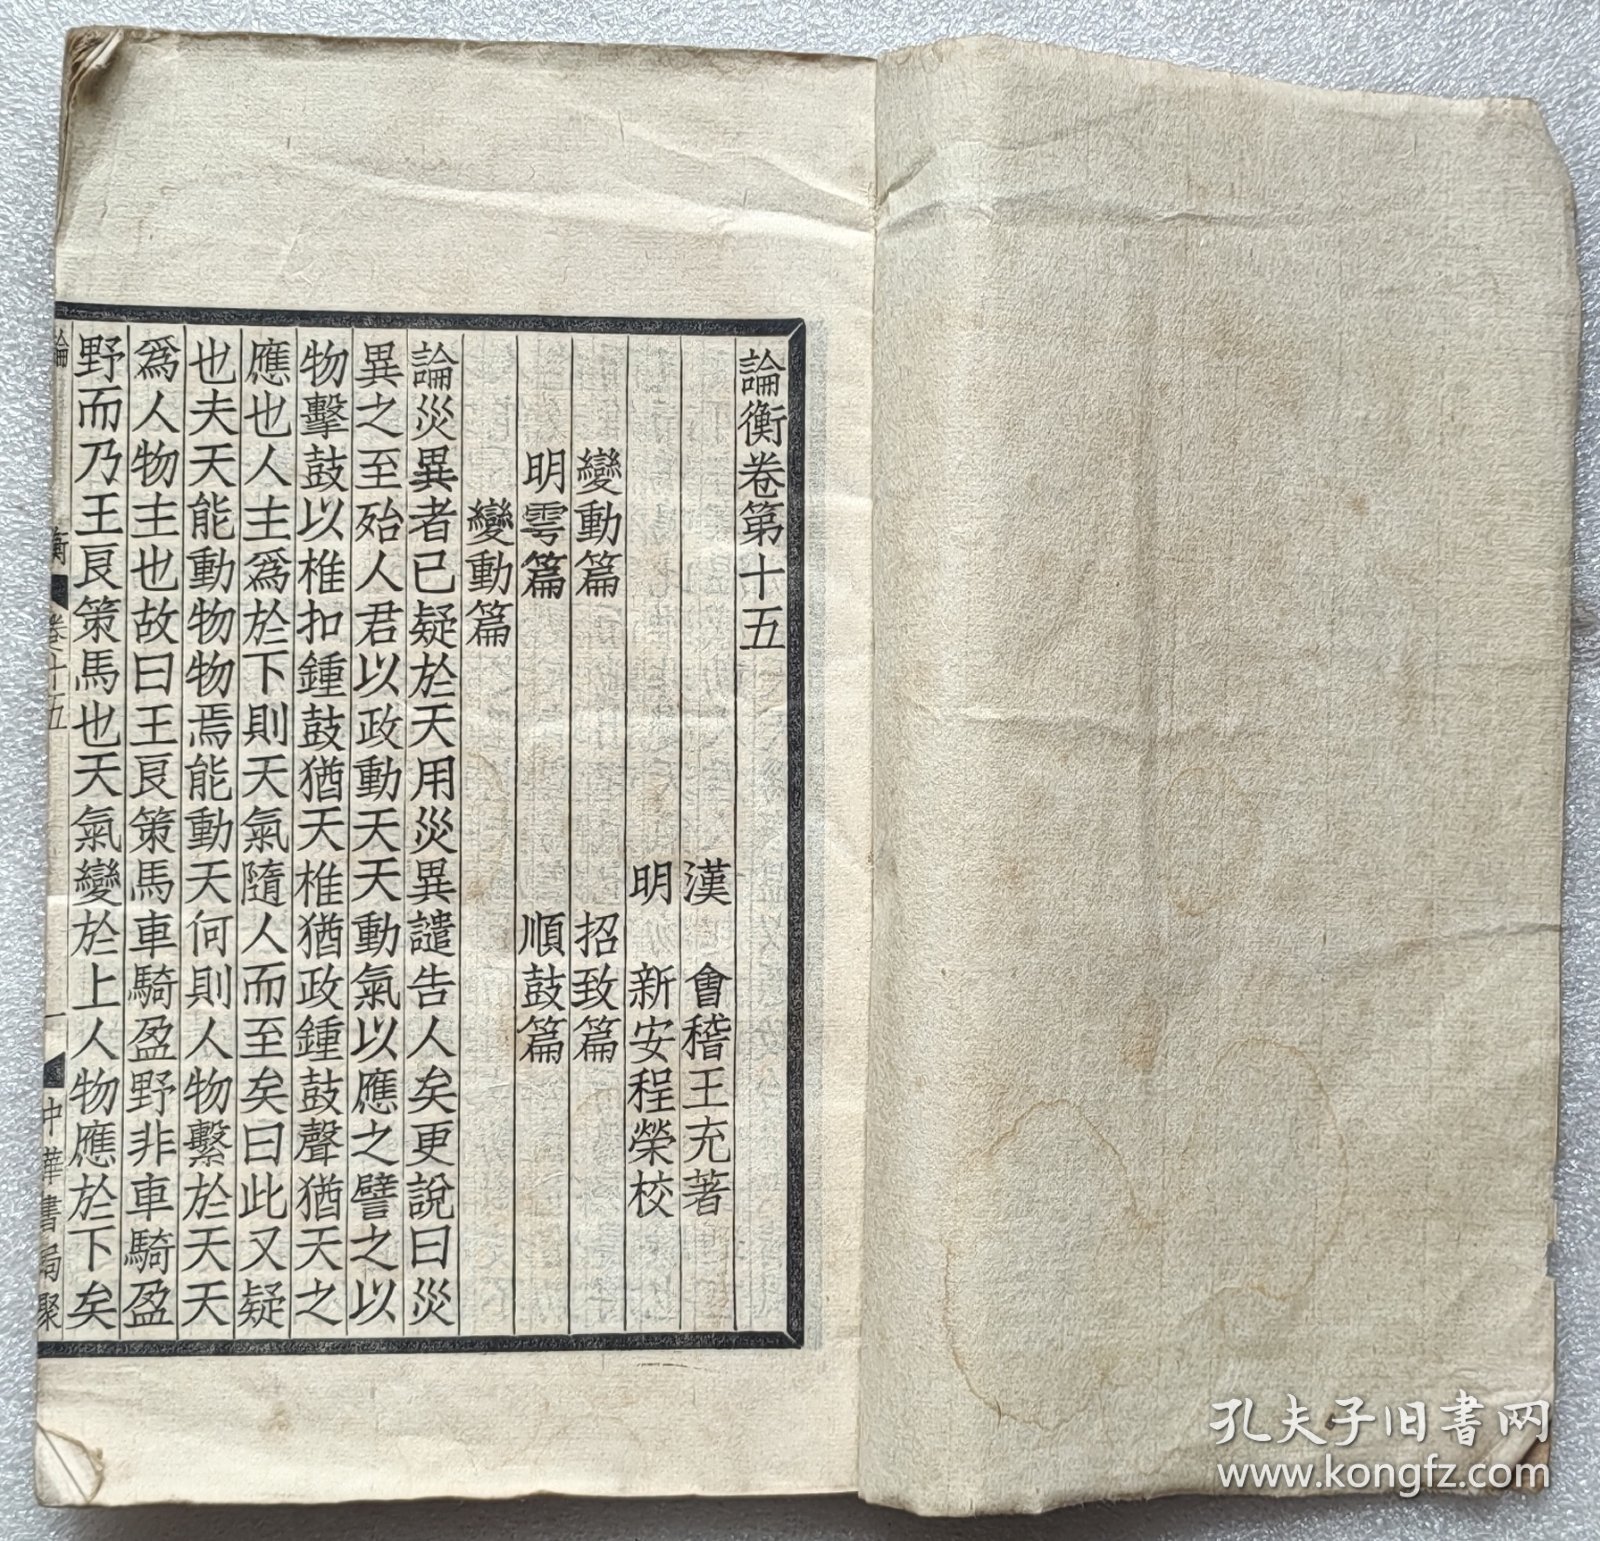 論衡卷第十五
漢　會稽王充著
明　新安程榮校
變動篇　招致篇
明雩篇　順鼓篇
變動篇
論災異者已疑於天用災異譴告人矣更說曰災
異之至殆人君以政動天天動氣以應之譬之以
物擊鼓以椎扣鍾鼓猶天椎猶政鍾鼓聲猶天之
應也人主爲於下則天氣隨人而至矣曰此又疑
也夫天能動物物焉能動天何則人物繫於天天
爲人物主也故曰王良策馬車騎盈野非車騎盈
野而乃王良策馬也天氣變於上人物應於下矣
論　衡　卷十五　一　中華書局聚
孔夫子旧书网
www.kongfz.com